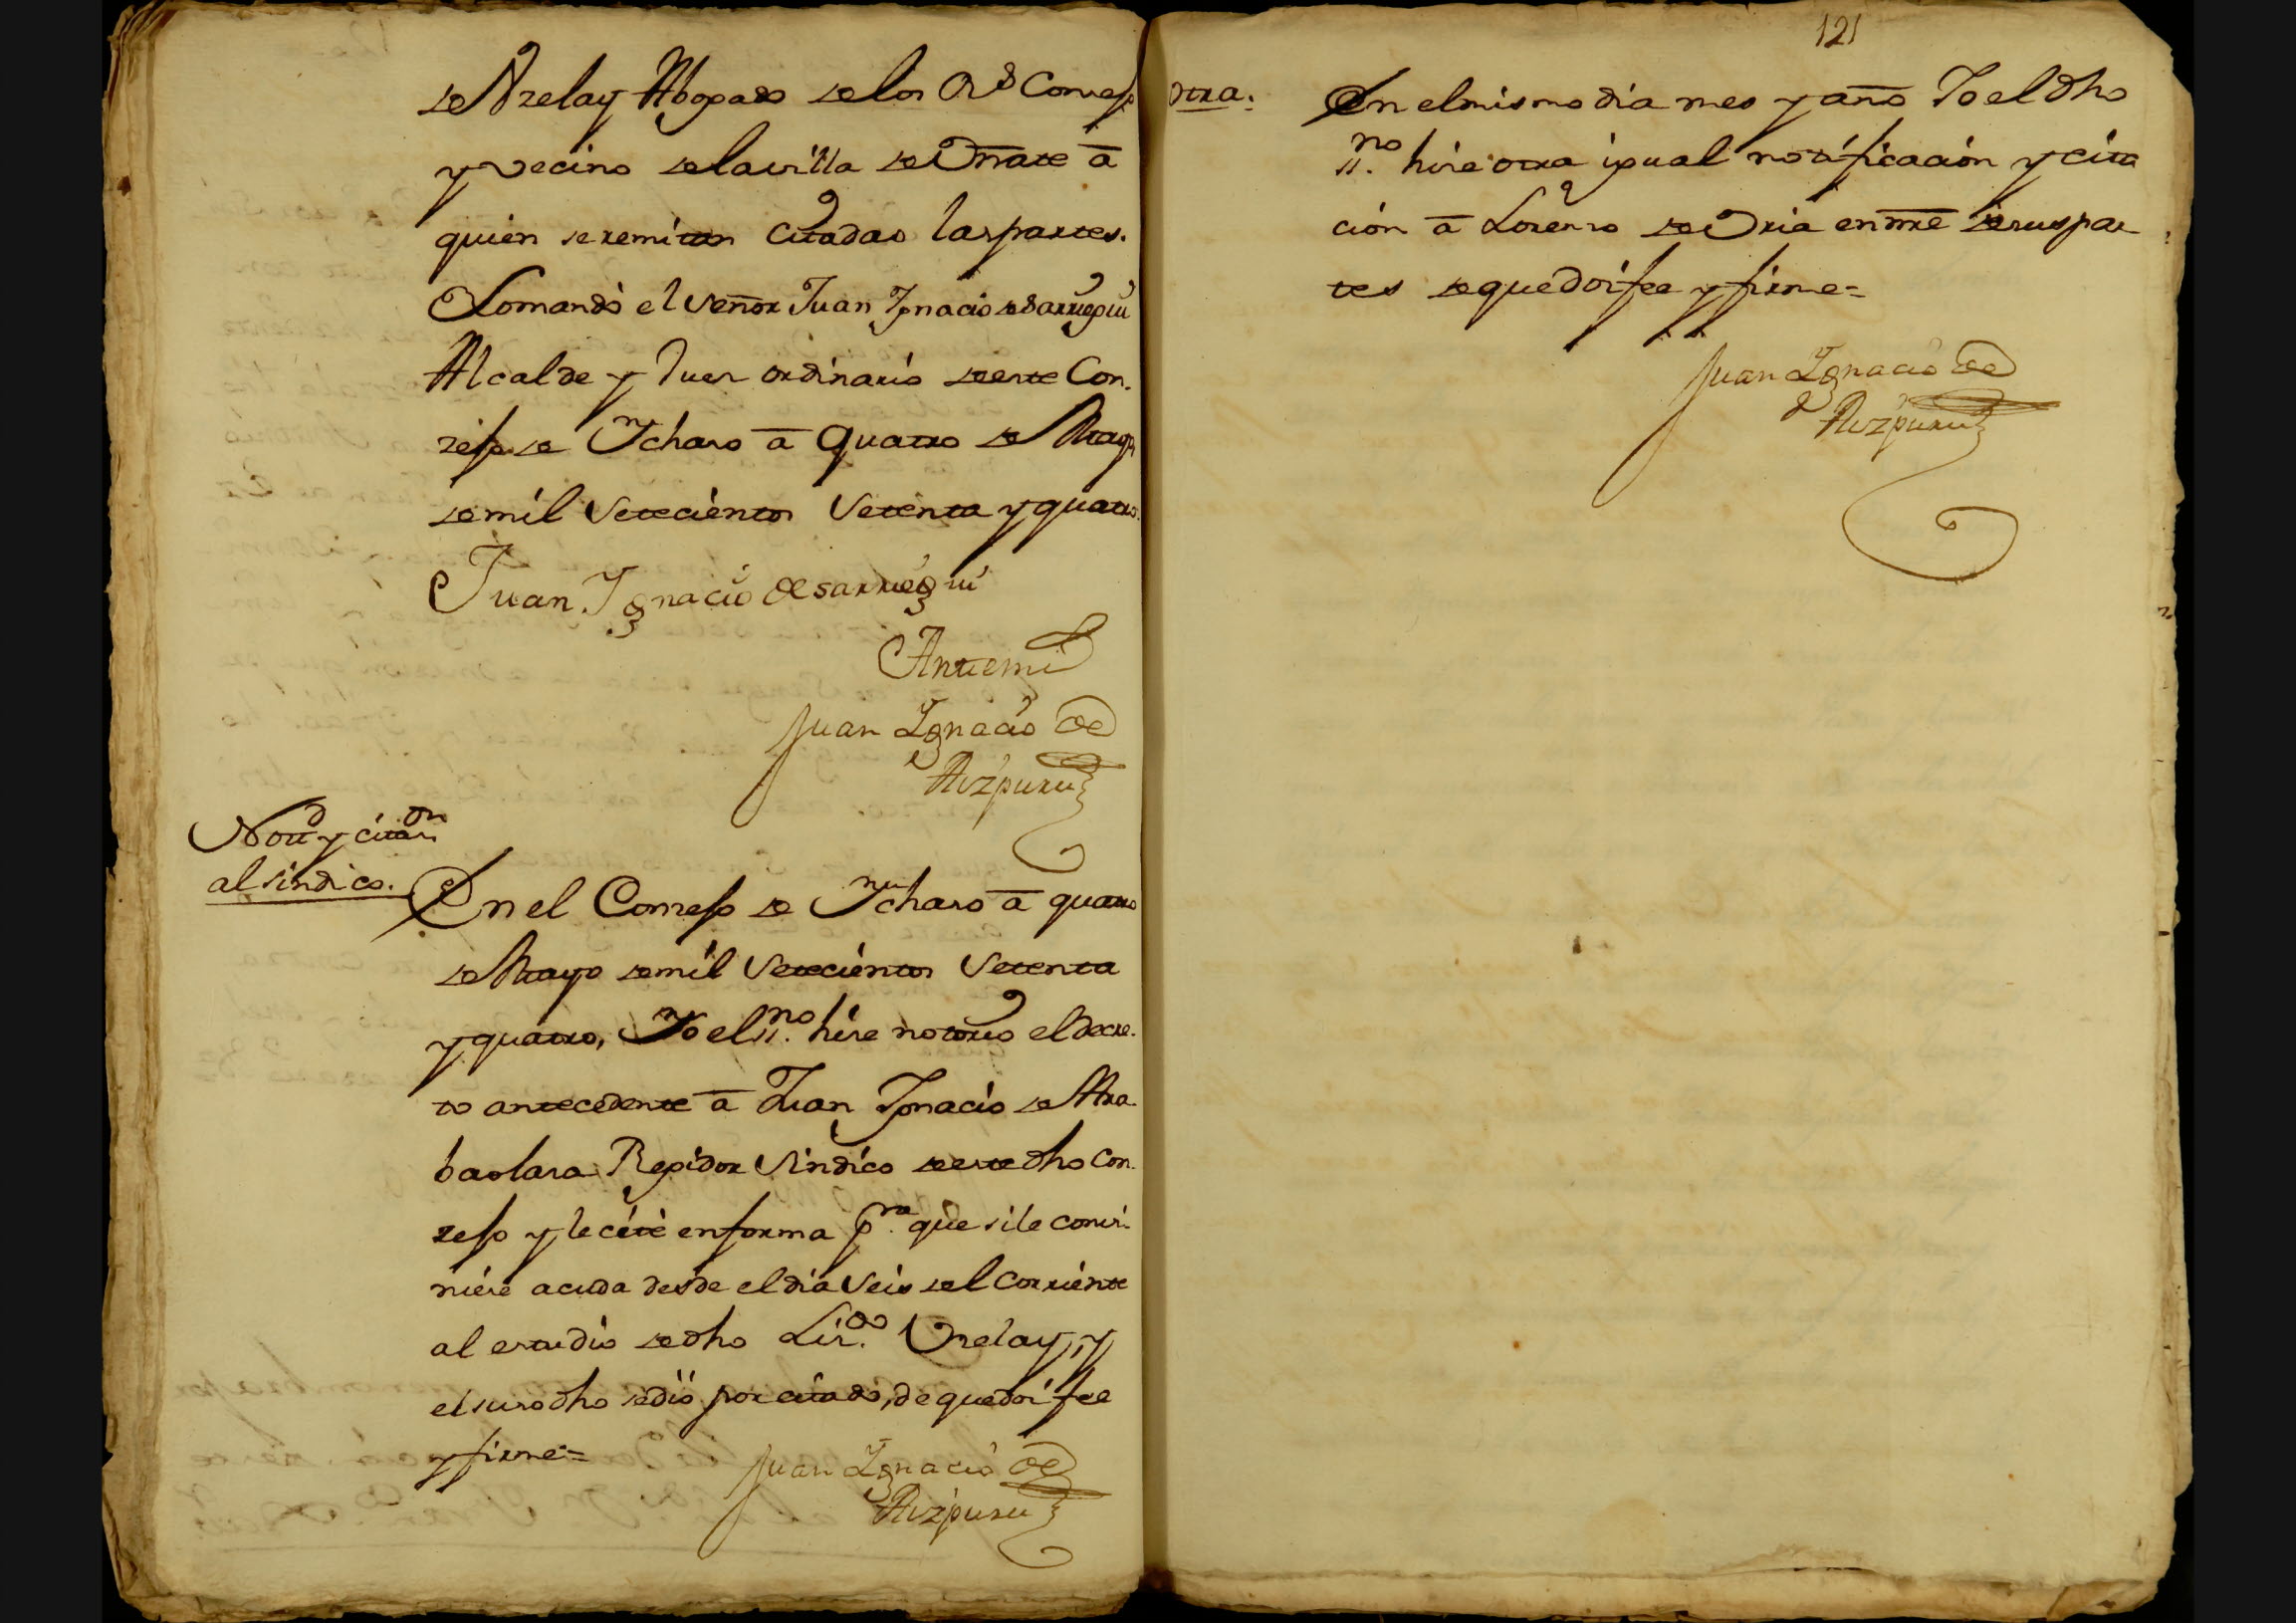 de Vzelay Abogado de los R.s Consejo
y vecino de la villa de Oñate â
quien se remitan citadas las partes.
Lo mandó el Señor Juan Ignacio de Sarrugui
Alcalde y Juez ordinario de este Con-
zejo de Ychaso â quatro de Mayo
de mil Setecientos Setenta y quatro.
Juan Ignacio de sarriegui
Antemi
Juan Ignacio de
Aizpuru
Not.n y citaz.on
al sindico.
En el Conzejo de Ychaso â quatro
de Mayo de mil Setecientos Setenta
y quatro, Yo el ss.no hize notorio el Decre-
to antecedente â Juan Ignacio de Ara-
baolaza Regidor Sindico de este dho Con-
zejo y le cité en forma p.ra que si le convi-
niere acuda desde el dia Seis del Corriente
al estudio de dho Liz.do Vzelay, y
el suso dho se dió por citado, de que doi fee
y firme =
Juan Ignacio de
Aizpuru
121
Otra.
En el mismo dia mes y año Yo el dho
ss.no hize otra igual notificación y cita
ción â Lorenzo de Oria en nre de sus par
tes de que doi fee y firme =
Juan Ignacio de
Aizpuru